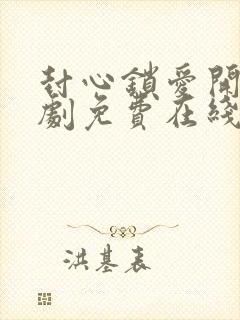 封心鎖愛開
劇免費在綫
洪基表